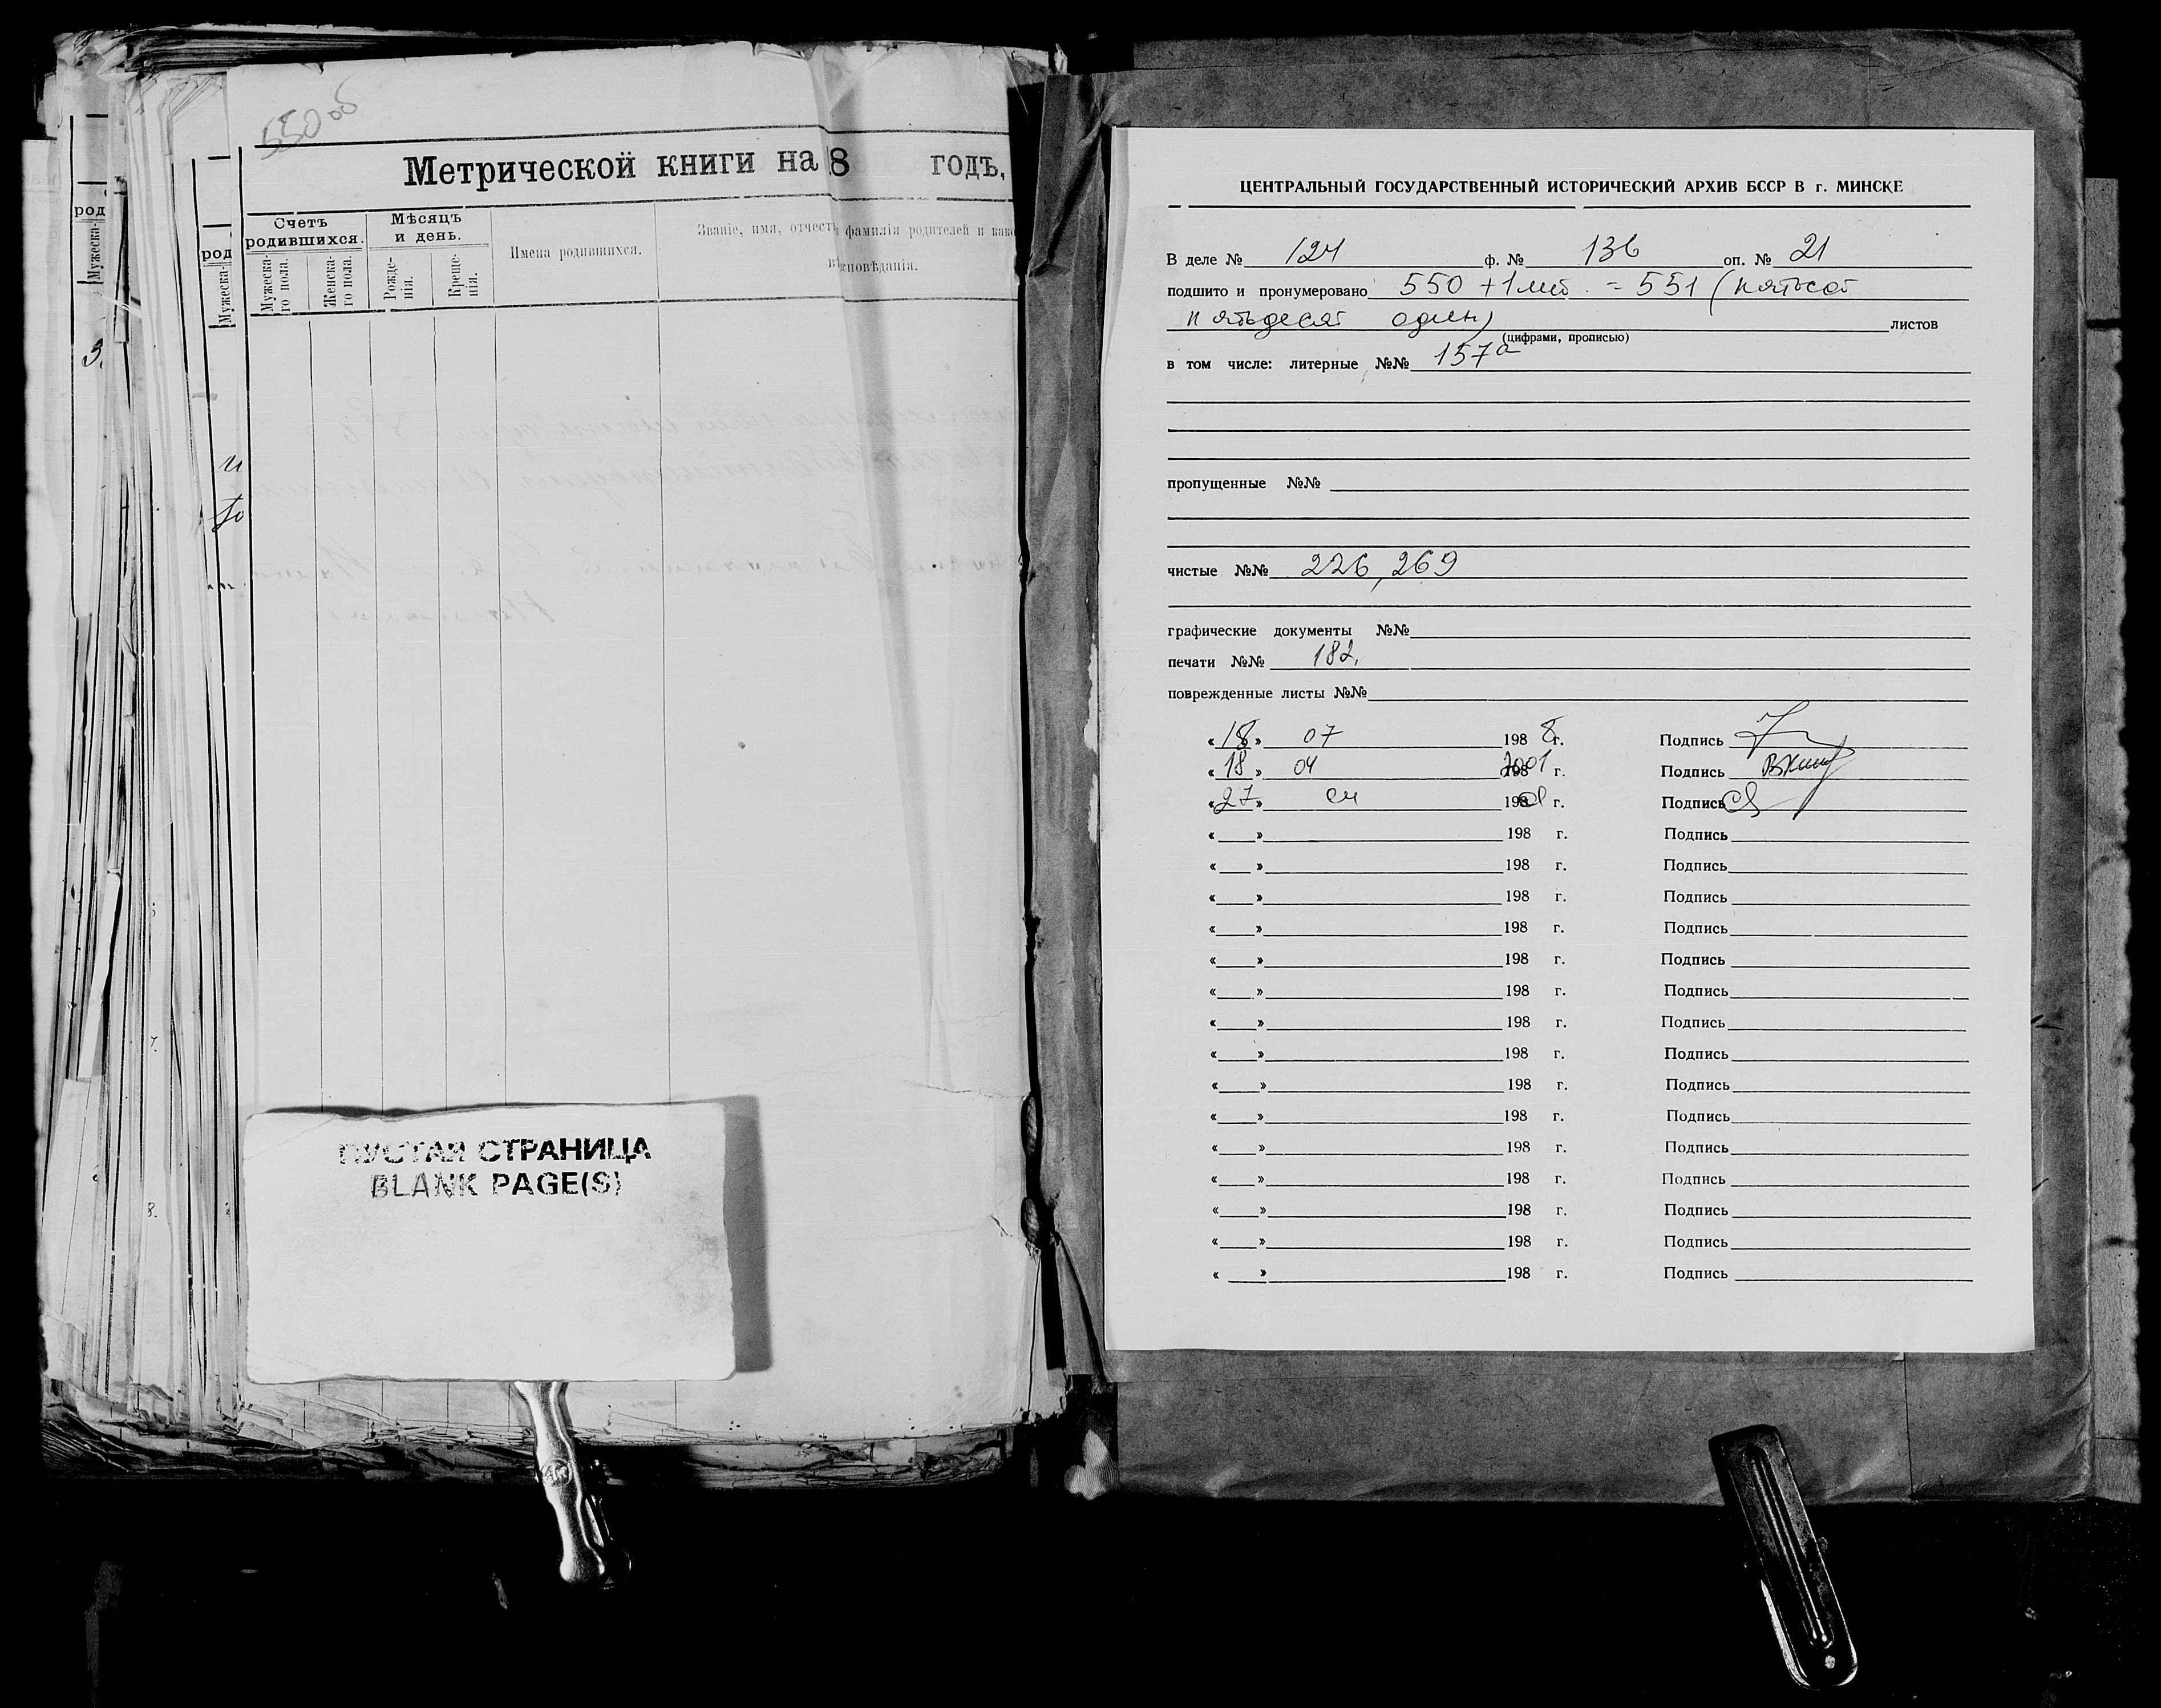 550 об
Метрической книги на 18 годъ,
Счетъ родившихся.
Мѣсяцъ и день.
Имена родившихся.
Званіе, имя, отчеств фамилія родителей и како
вѣроисповѣданія.
Мужеска-го пола.
Женска-го пола.
Рожде-нія.
Креще-нія.
род
Мужеска-
род
Мужеска-
ПУСТАЯ СТРАНИЦА
BLANK PAGE(S)
ЦЕНТРАЛЬНЫЙ ГОСУДАРСТВЕННЫЙ ИСТОРИЧЕСКИЙ АРХИВ БССР В г. МИНСКЕ
В деле № 124 ф. № 136 оп. № 21
подшито и пронумеровано 550 + 1 лит. = 551 (пятьсот
пятьдесят один) листов
(цифрами, прописью)
в том числе: литерные №№ 157а
пропущенные №№
чистые №№ 226, 269
графические документы №№
печати №№ 182.
поврежденные листы №№
« 18 » 07 198 8 г. Подпись
« 18 » 04 2001 г. Подпись
« 27 » 198 г. Подпись
« » 198 г. Подпись
« » 198 г. Подпись
« » 198 г. Подпись
« » 198 г. Подпись
« » 198 г. Подпись
« » 198 г. Подпись
« » 198 г. Подпись
« » 198 г. Подпись
« » 198 г. Подпись
« » 198 г. Подпись
« » 198 г. Подпись
« » 198 г. Подпись
« » 198 г. Подпись
« » 198 г. Подпись
« » 198 г. Подпись